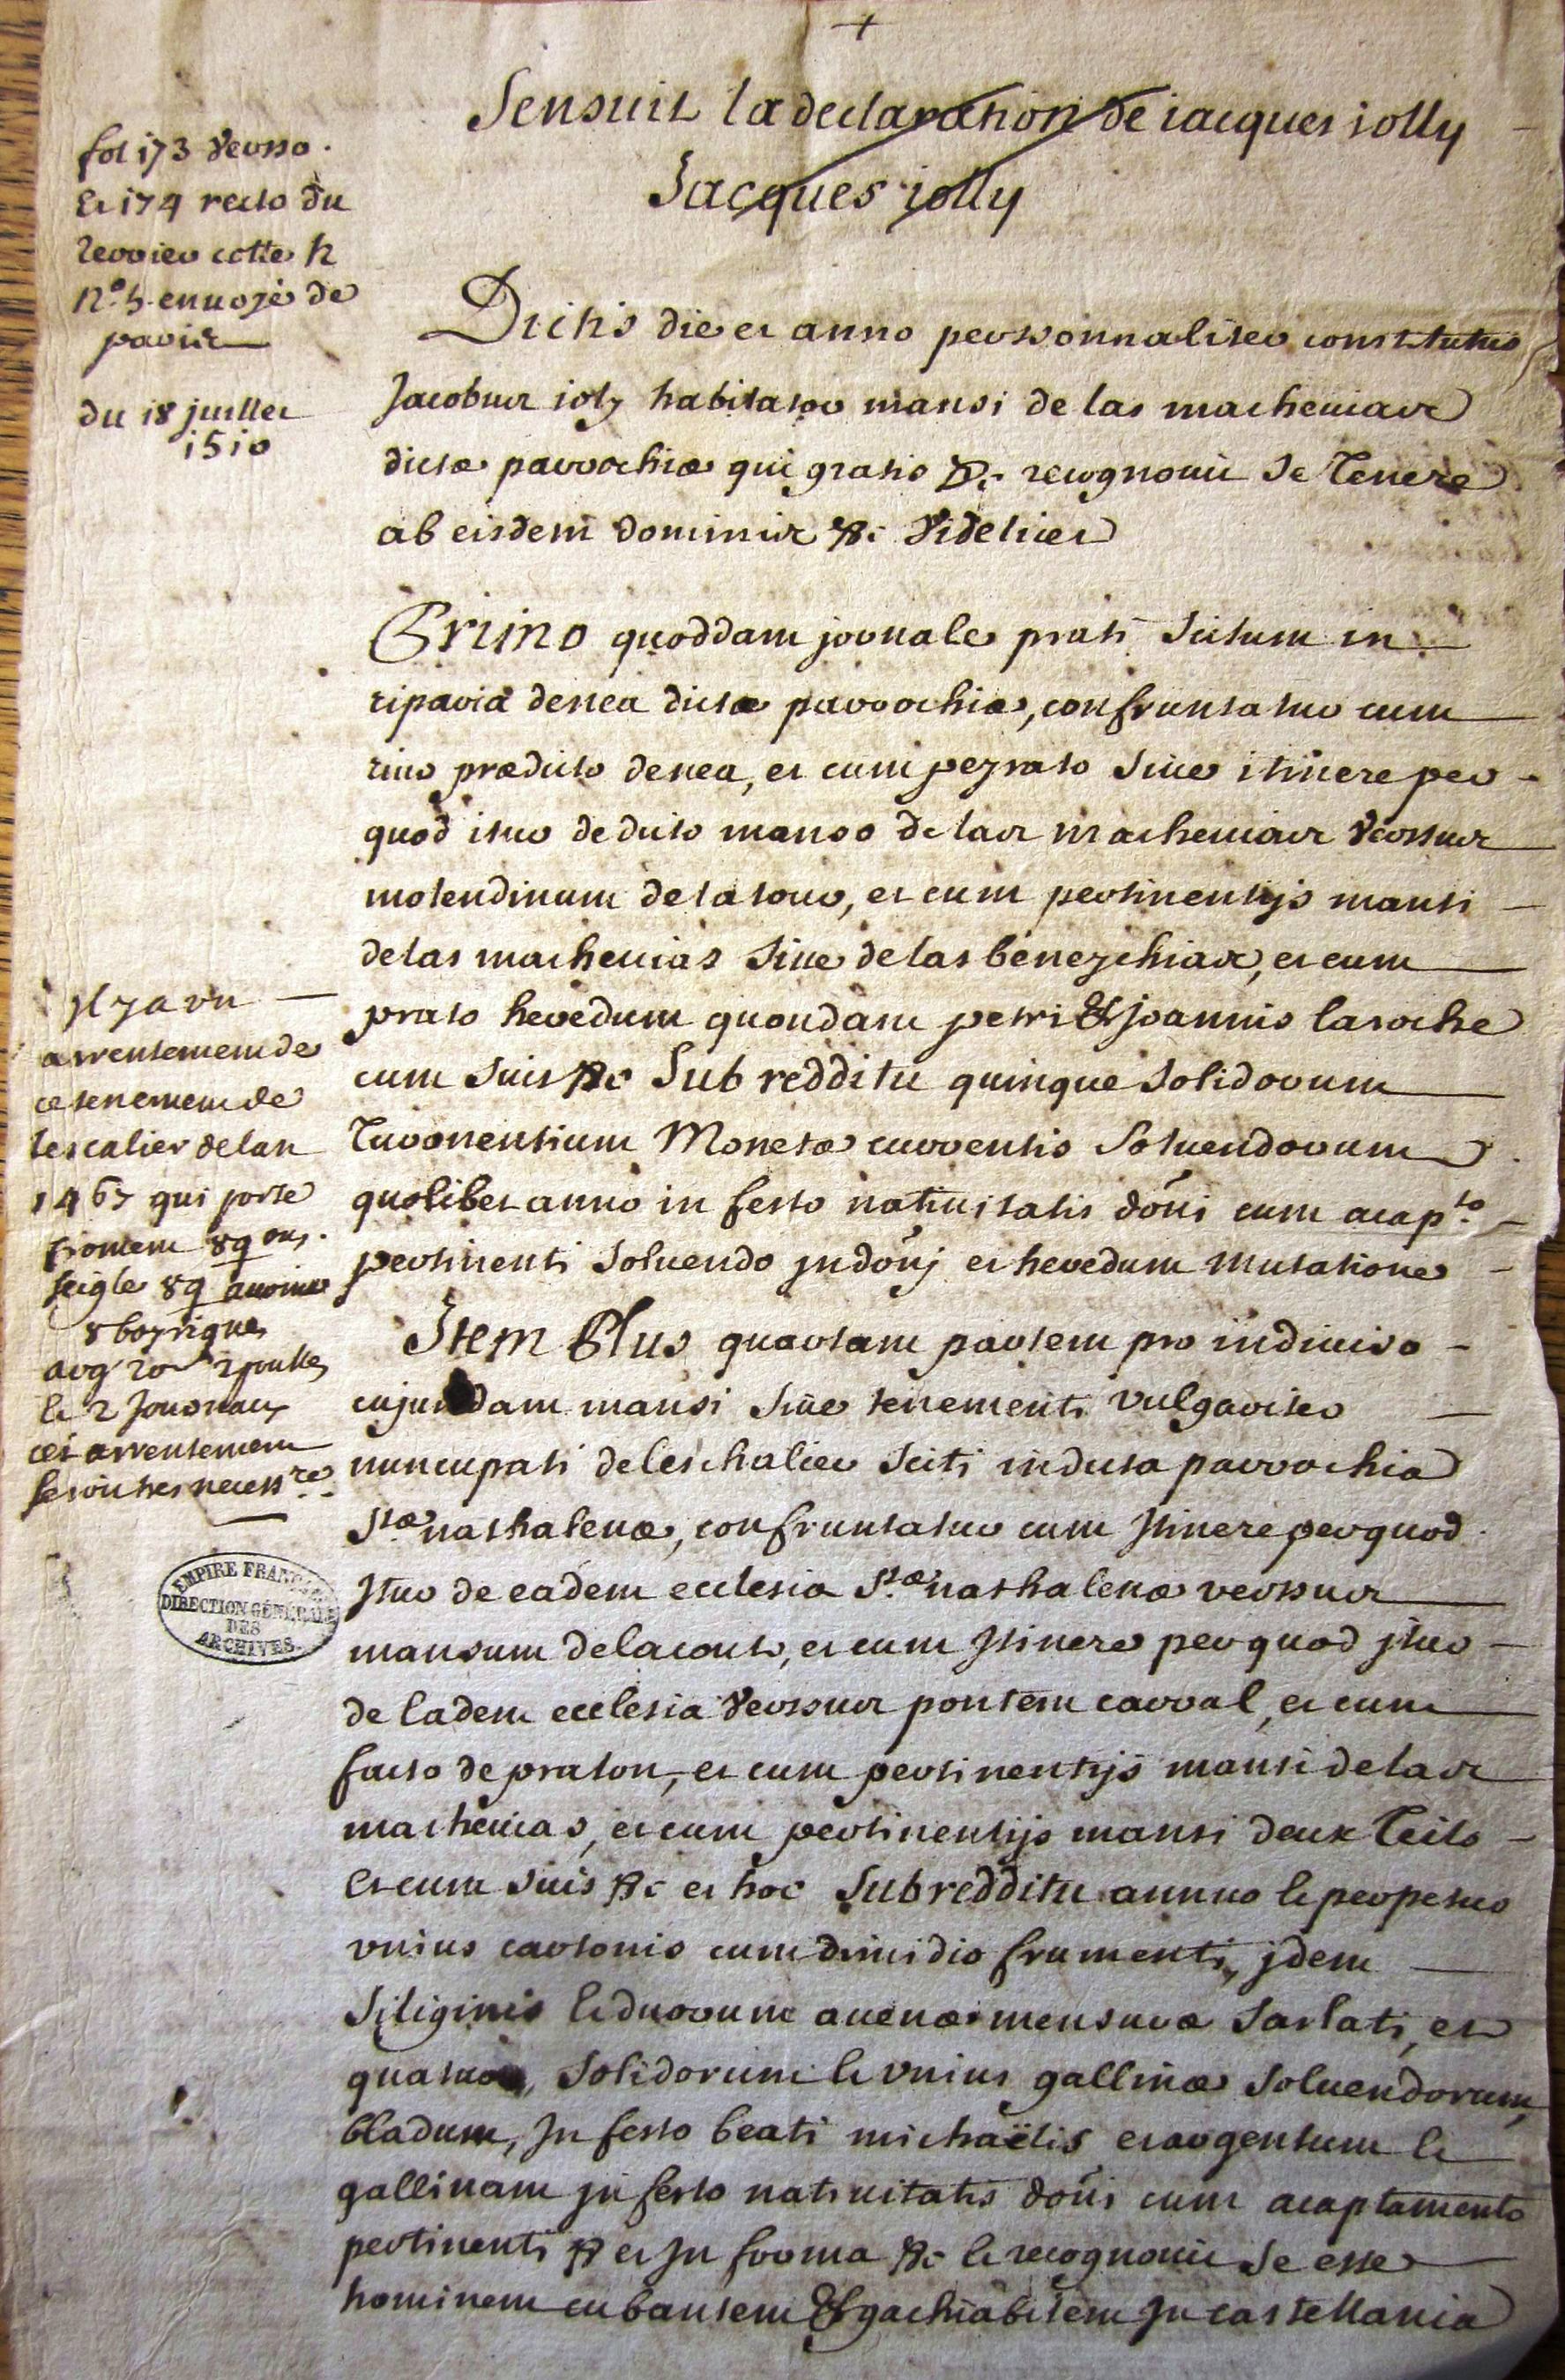 +
Sensuit la declaration de iacques iolly
Jacques iolly
fol 173 verso
et 174 recto du
terrier cotte h
n.o 5 enuoyé de
paris
du 18 juillet
1510
Dictis die et anno perssonnaliter constitutus
Jacobus ioly habitator mansi de las macheuias
dictæ parrochiæ qui gratis &c recognouit se tenere
ab eisdem dominis &c videlicet
Primo quoddam jornale prati scitum in
ripariâ denea dictæ parrochiæ, confruntatur cum
riuo prædicto denea, et cum peyrato siue itinere per
quod itur de dicto manso de las macheuias verssus
molendinum de la tour, et cum pertinentijs mansi
de las macheuias siue de las beneychias, et cum
prato heredum quondam petri & joannis laroche
cum suis &c Sub redditu quinque solidorum
Turonentium Monetæ currentis Soluendorum
quolibet anno in festo natiuitatis dôni cum acap.to
pertinenti soluendo jn dônj et heredum mutatione
Il y a vn
arrentement de
ce tenement de
lescalier de lan
1467 qui porte
froment 8q ons
seigle 8q auoine
8 boyrigues
arg 20 s 2 poulles
et 2 Journaux
cet arrentement
seroit tres necess.re
Item Plus quartam partem pro indiuiso
cujusdam mansi siue tenementi vulgariter
nuncupati de leschalier sciti in dicta parrochia
S.tæ nathalenæ, confruntatur cum Itinere per quod
Itur de eadem ecclesia S.tæ nathalenæ verssus
mansum de lacoste, et cum Itinere per quod jtur
de eadem ecclesia verssus pontem carral, et cum
facto de praton, et cum pertinentijs mansi de las
macheuias, et cum pertinentijs mansi deux Teits
et cum suis &c et hoc Sub redditu annuo et perpetuo
vnius cartonis cum dimidio frumenti, jdem
Siliginis et duorum auenæ mensuræ Sarlati, et
quatuor, solidorum et vnius gallinæ Soluendorum,
bladum, In festo beati michaëlis et argentum et
gallinam jn festo natiuitatis dôni cum acaptamento
pertinenti & et In forma &c et recognouit se esse
hominem cubantem & gachiabilem In castellania
EMPIRE FRANÇAIS
DIRECTION GÉNÉRALE
DES
ARCHIVES